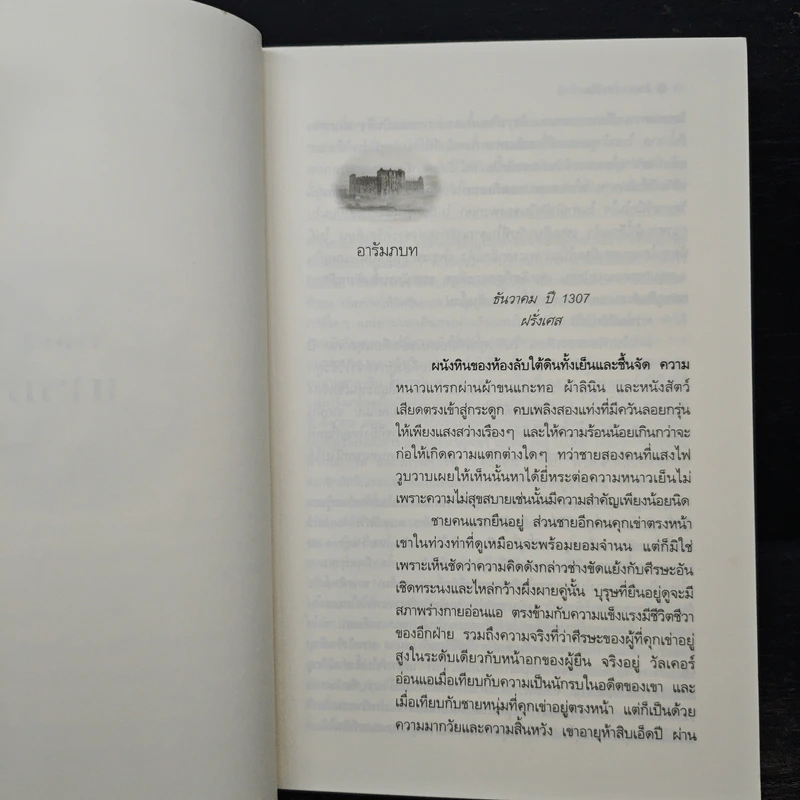 อารัมภบท
ธันวาคม ปี 1307
ฝรั่งเศส
ผนังหินของห้องลับใต้ดินทั้งเย็นและชื้นจัด ความ
หนาวแทรกผ่านผ้าขนแกะทอ ผ้าลินิน และหนังสัตว์
เสียดตรงเข้าสู่กระดูก คบเพลิงสองแท่งที่มีควันลอยกรุ่น
ให้เพียงแสงสว่างเรืองๆ และให้ความร้อนน้อยเกินกว่าจะ
ก่อให้เกิดความแตกต่างใดๆ ทว่าชายสองคนที่แสงไฟ
วูบวาบเผยให้เห็นนั้นหาได้ยี่หระต่อความหนาวเย็นไม่
เพราะความไม่สุขสบายเช่นนั้นมีความสำคัญเพียงน้อยนิด
ชายคนแรกยืนอยู่ ส่วนชายอีกคนคุกเข่าตรงหน้า
เขาในท่วงท่าที่ดูเหมือนจะพร้อมยอมจำนน แต่ก็มิใช่
เพราะเห็นชัดว่าความคิดดังกล่าวช่างขัดแย้งกับศีรษะอัน
เชิดทระนงและไหล่กว้างผึ่งผายคู่นั้น บุรุษที่ยืนอยู่ดูจะมี
สภาพร่างกายอ่อนแอ ตรงข้ามกับความแข็งแรงมีชีวิตชีวา
ของอีกฝ่าย รวมถึงความจริงที่ว่าศีรษะของผู้ที่คุกเข่าอยู่
สูงในระดับเดียวกับหน้าอกของผู้ยืน จริงอยู่ วัลเคอร์
อ่อนแอเมื่อเทียบกับความเป็นนักรบในอดีตของเขา และ
เมื่อเทียบกับชายหนุ่มที่คุกเข่าอยู่ตรงหน้า แต่ก็เป็นด้วย
ความมากวัยและความสิ้นหวัง เขาอายุห้าสิบเอ็ดปี ผ่าน